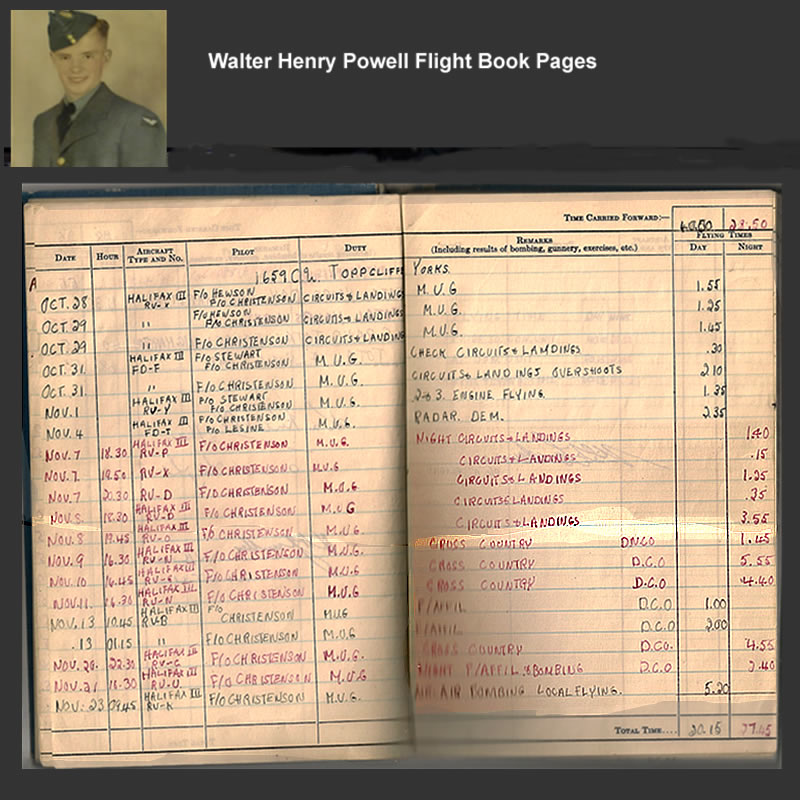 Walter Henry Powell Flight Book Pages
DATE HOUR AIRCRAFT TYPE AND NO. PILOT DUTY
1659 C.U. TOPPCLIFFE
OCT. 28 HALIFAX III RV-X F/O HEWSON P/O CHRISTENSON CIRCUITS & LANDINGS
OCT. 29 " F/O HEWSON P/O CHRISTENSON CIRCUITS & LANDINGS
OCT. 29 " F/O CHRISTENSON CIRCUITS & LANDING
OCT. 31 HALIFAX III FD-F F/O STEWART F/O CHRISTENSON M.U.G.
OCT. 31 " F/O CHRISTENSON M.U.G.
NOV. 1 HALIFAX III RV-Y F/O STEWART F/O CHRISTENSON M.U.G.
NOV. 4 HALIFAX III FD-T F/O CHRISTENSON P/O LESINE M.U.G.
NOV. 7 18.30 HALIFAX III RV-P F/O CHRISTENSON M.U.G.
NOV. 7. 19.50 RV-X F/O CHRISTENSON M.U.G
NOV. 7 20.30 RV-D F/O CHRISTENSON M.U.G
NOV. 8. 18.30 HALIFAX III RV-D F/O CHRISTENSON M.U.G
NOV. 8 19.45 HALIFAX III RV-O F/O CHRISTENSON M.U.G.
NOV. 9 16.30 HALIFAX III RV-N F/O CHRISTENSON M.U.G.
NOV. 10 16.45 HALIFAX III F/O CHRISTENSON M.U.G
NOV. 11. 16.30 HALIFAX III RV-N F/O CHRISTENSON M.U.G
NOV. 13 10.45 HALIFAX III RV-B F/O CHRISTENSON M.U.G
. 13 01.15 " F/O CHRISTENSON M.U.G
NOV. 20. 22.30 HALIFAX III RV-C F/O CHRISTENSON M.U.G.
NOV. 21 16.30 HALIFAX III RV-U F/O CHRISTENSON M.U.G
NOV. 23 09.45 HALIFAX III RV-K F/O CHRISTENSON M.U.G.
TIME CARRIED FORWARD:— 23.50
REMARKS FLYING TIMES
(Including results of bombing, gunnery, exercises, etc.) DAY NIGHT
YORKS.
M.U.G 1.55
M.U.G. 1.25
M.U.G. 1.45
CHECK CIRCUITS & LANDINGS .30
CIRCUITS & LANDINGS OVERSHOOTS 2.10
2 & 3. ENGINE FLYING. 1.35
RADAR. DEM. 2.35
NIGHT CIRCUITS & LANDINGS 1.40
CIRCUITS & LANDINGS .15
CIRCUITS & LANDINGS 1.25
CIRCUITS & LANDINGS .25
CIRCUITS & LANDINGS 3.55
CROSS COUNTRY DNCO 1.45
CROSS COUNTRY D.C.O. 5.55
CROSS COUNTRY D.C.O 4.40
F/AFFIL D.C.O 1.00
F/AFFIL D.C.O 2.00
CROSS COUNTRY D.CO. 4.55
NIGHT F/AFFIL & BOMBING D.C.O 2.40
AIR. AIR BOMBING LOCAL FLYING. 5.20
TOTAL TIME.... 20.15 27.45